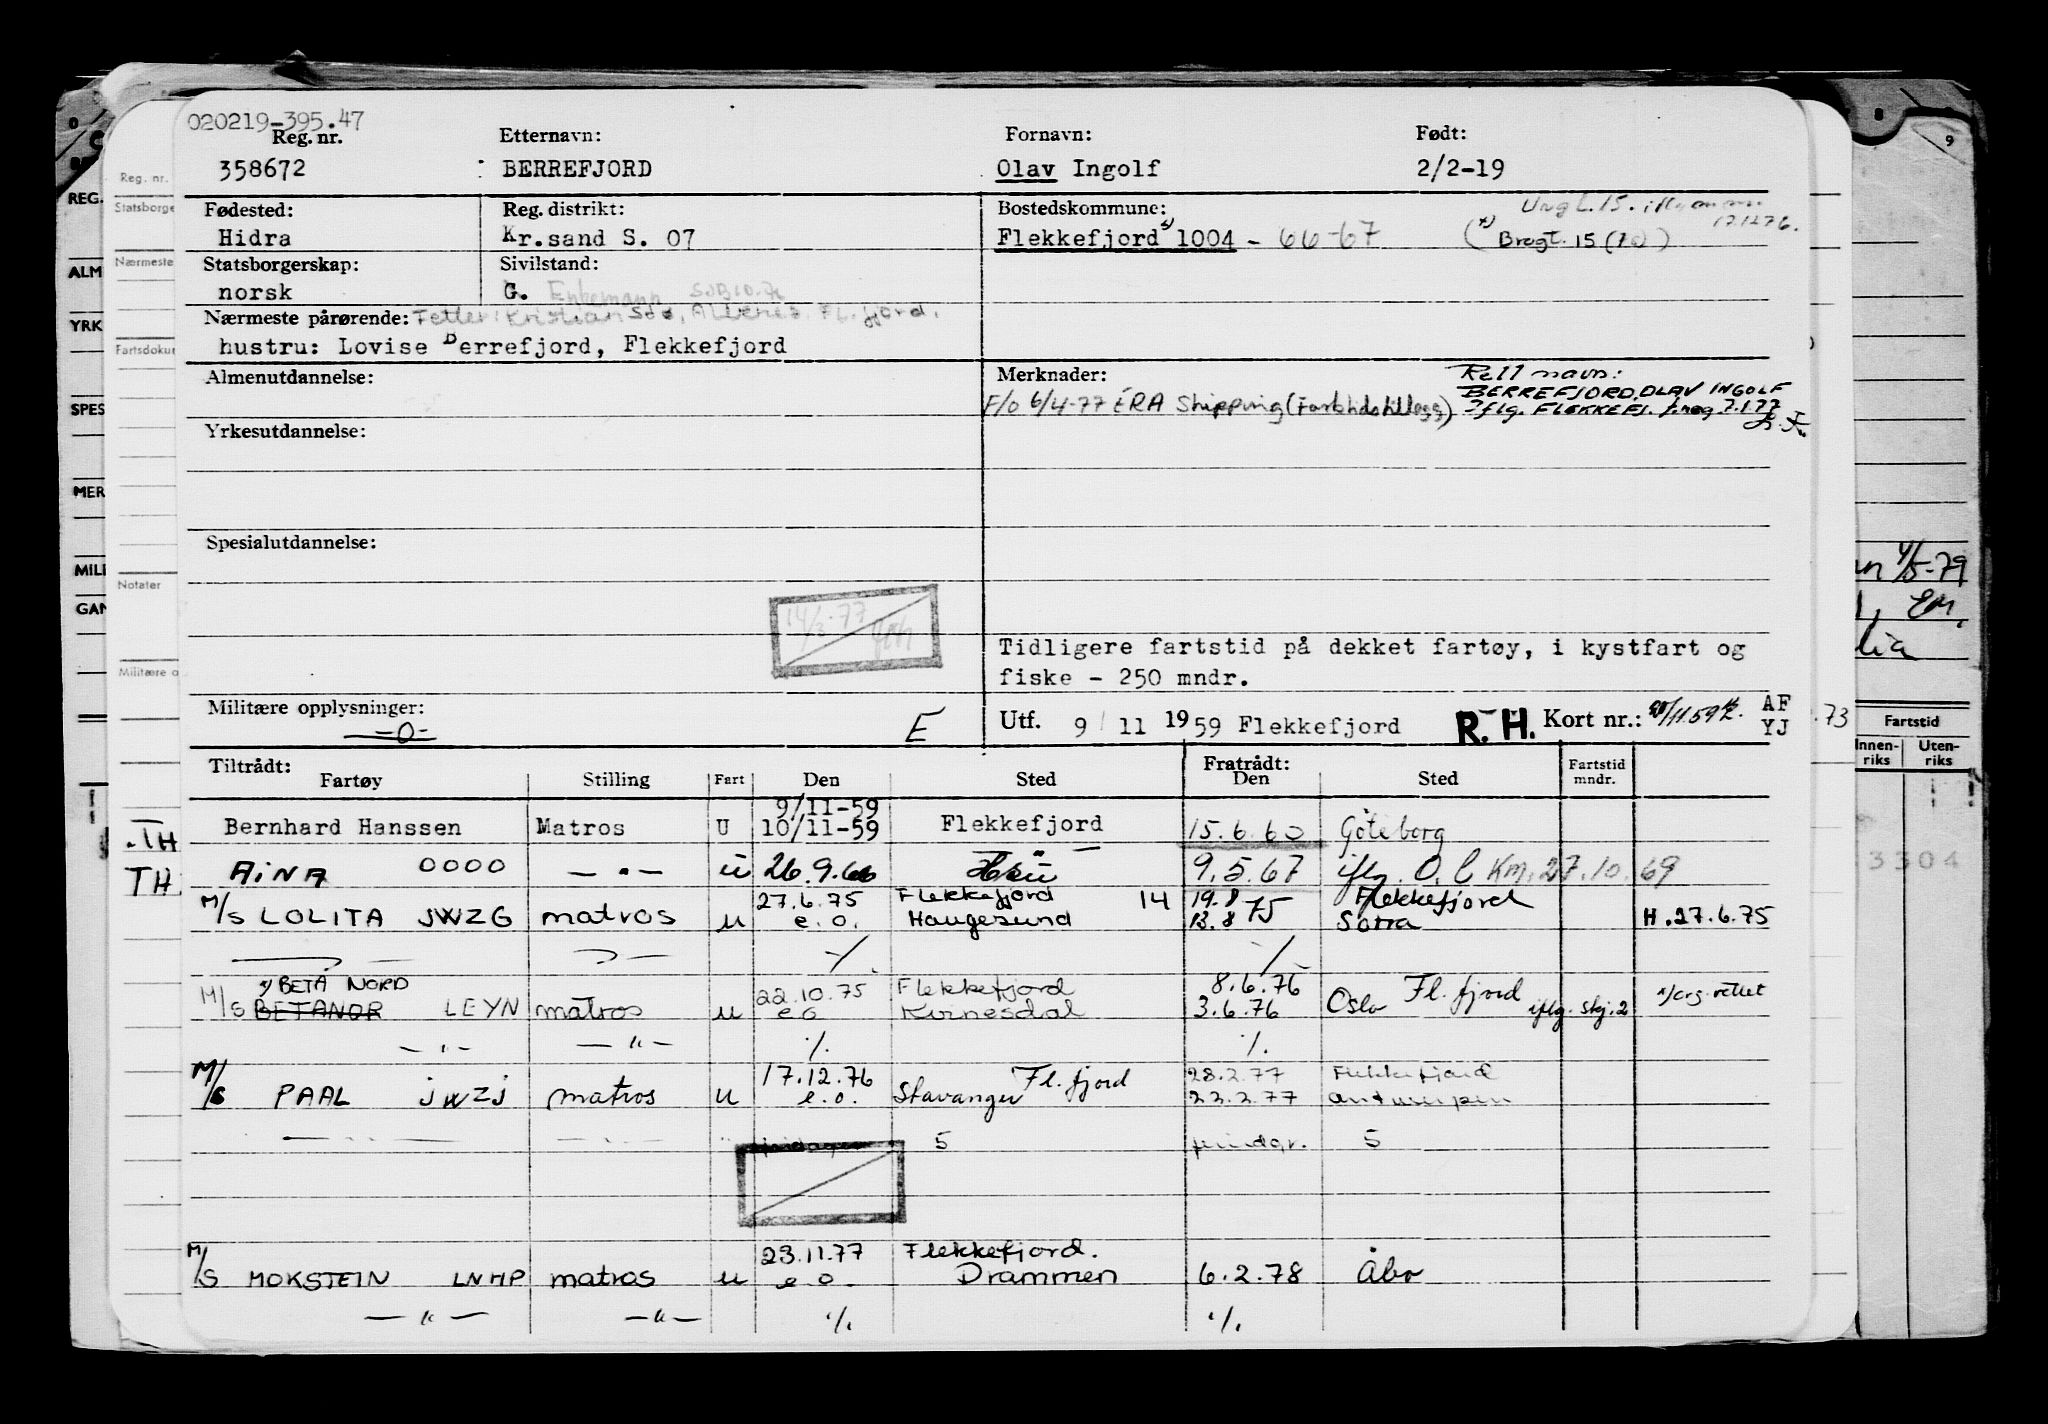 020219-395.47
Reg. nr. Etternavn: Fornavn: Født:
358672 BERREFJORD Olav Ingolf 2/2-19
Fødested: Reg. distrikt: Bostedskommune:
Hidra Kr.sand S. 07 Flekkefjord 1004 - 66-67 Bragt. 15 (70)
Statsborgerskap: Sivilstand:
norsk G. Enkemann
Nærmeste pårørende: Fetter: Kristian Fl.fjord.
hustru: Lovise Berrefjord, Flekkefjord
Almenutdannelse: Merknader: Rett navn:
BERREFJORD, OLAV INGOLF
F/o 6/4-77 ERA Shipping (Fartstidstillegg) iflg. FLEKKEFJ. 7.1.77
Yrkesutdannelse:
Spesialutdannelse:
14/3-77
Tidligere fartstid på dekket fartøy, i kystfart og
fiske - 250 mndr.
Militære opplysninger:
-0- E Utf. 9/11 1959 Flekkefjord R.H. Kort nr.: AF
YJ
Tiltrådt: Fratrådt: Fartstid
Fartøy Stilling Fart Den Sted Den Sted mndr.
9/11-59
Bernhard Hanssen Matros U 10/11-59 Flekkefjord 15.6.60 Göteborg
AINA OOOO — " — u 26.9.66 9.5.67 iflg. O.C Km. 27.10.69
27.6.75 Flekkefjord 14 19.8 Flekkefjord
M/S LOLITA JWZG matros u e.o. Haugesund 13.8 75 Sotra H.27.6.75
./. ./.
x) BETA NORD 22.10.75 Flekkefjord 8.6.76 Fl.fjord
M/S BETANOR LEYN matros u e.o. Kvinesdal 3.6.76 Oslo iflg. skj.2 x) org. rettet
— " — — " — ./. ./.
17.12.76 Fl.fjord 28.2.77 Flekkefjord
M/S PAAL JWZJ matros u e.o. Stavanger 22.2.77 Antwerpen
5 5
23.11.77 Flekkefjord.
M/S MOKSTEIN LNMP matros u e.o. Drammen 6.2.78 Åbo
— " — — " — ./. ./.
REG.
ALM
YRK
SPES
MER
MILI
GAN
Reg. nr.
Statsborge
Nærmeste
Fartsdoku
Notater
Militære o
.TH
TH
4/5-79
EM.
73
Fartstid
Innen-
riks
Uten-
riks
3304
8
9